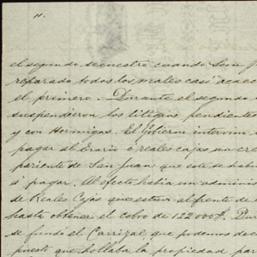 11.
el segundo secuestro cuando San J
reparado todos los males casi acaec
el primero. Durante el segundo
suspendieron los litigios pendiente
y con Hormigas. El Gobierno intervino
pagar al Erario ó reales cajas un cre
pariente de San Juan que este se habi
á pagar. Al efecto habia un administ
de Reales Cajas que estuvo al frente de
hasta obtener el cobro de 122000$. Dur
se fundó el Carrizal que podemos dec
puesto que hollaba la propiedad par